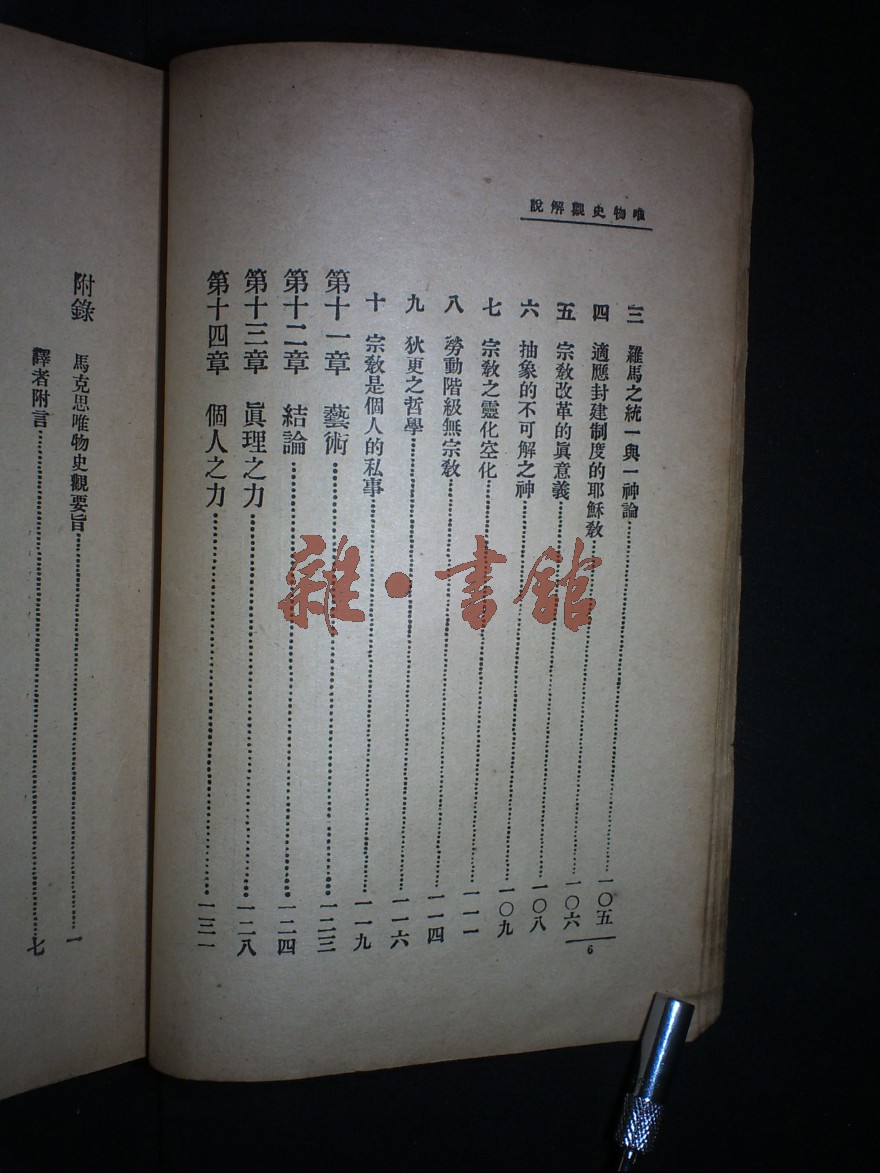 唯物史觀解說
三 羅馬之統一與一神論……一〇五
四 適應封建制度的耶穌敎……一〇六
五 宗敎改革的眞意義……一〇八
六 抽象的不可解之神……一〇九
七 宗敎之靈化空化……一一一
八 勞動階級無宗敎……一一四
九 狄更之哲學……一一六
十 宗敎是個人的私事……一一九
第十一章 藝術……一二三
第十二章 結論……一二四
第十三章 眞理之力……一二八
第十四章 個人之力……一三一
6
附錄 馬克思唯物史觀要旨……一
譯者附言……七
雜·書館